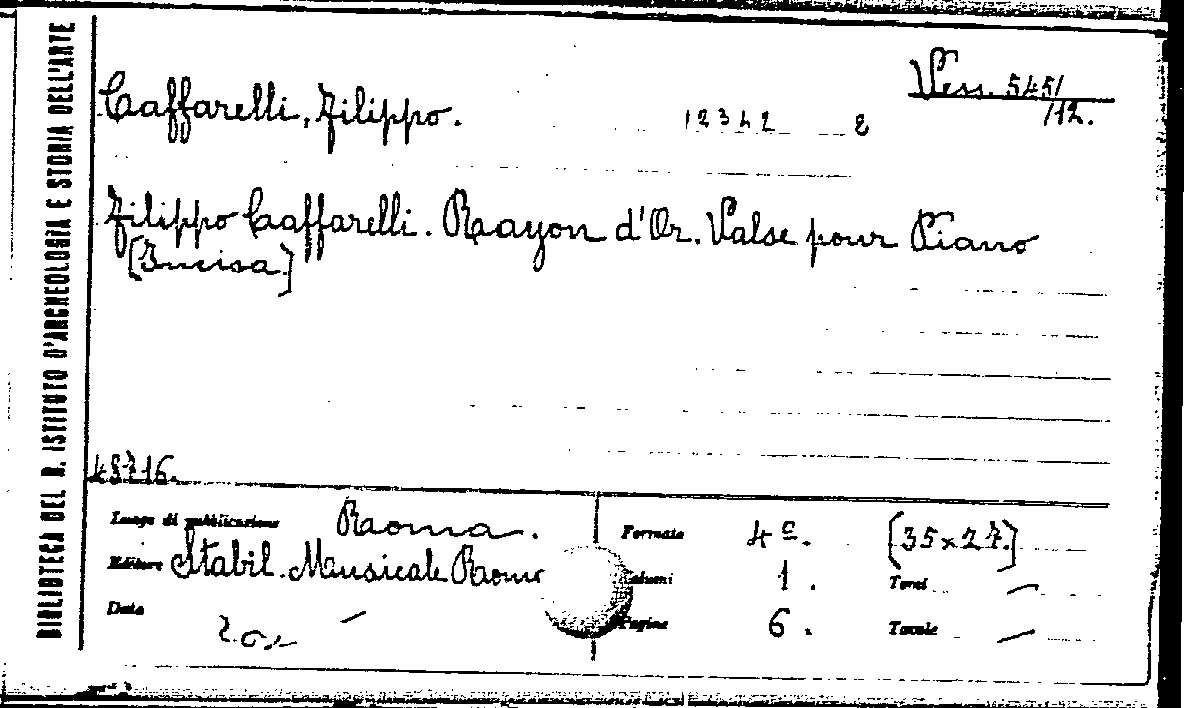 BIBLIOTECA DEL R. ISTITUTO D'ARCHEOLOGIA E STORIA DELL'ARTE
Vess. 545/
/12.
Caffarelli, Filippo.
12342 E
Filippo Caffarelli. Rayon d'Or. Valse pour Piano
[Incisa]
Luogo di pubblicazione Roma.
Editore Stabil. Musicale Roma
Data —
Formato 4º. [35×27.]
Volumi 1. Tomi —
Pagine 6. Tavole —